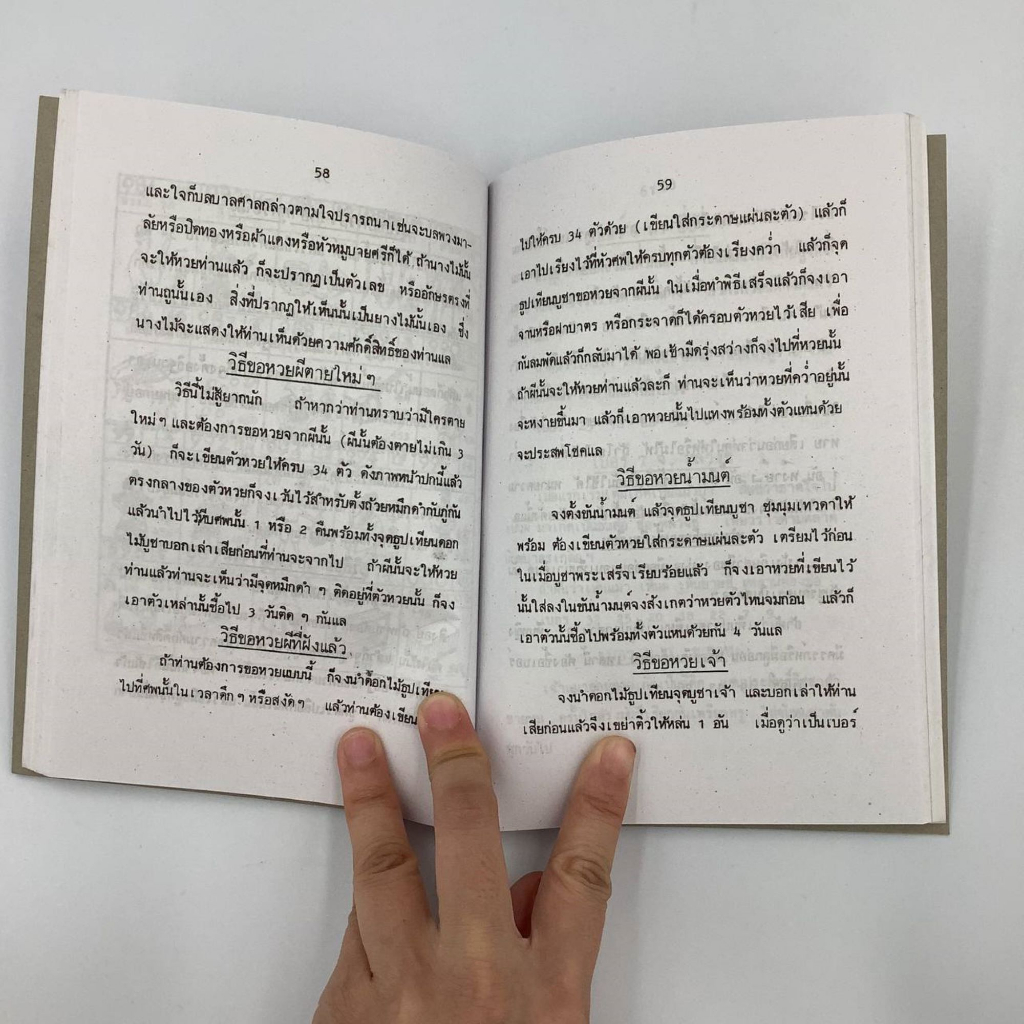 58
และใจก็บลบาลศาลกล่าวตามใจปรารถนาเช่นจะบลพวงมา-
ลัยหรือปิดทองหรือผ้าแดงหรือหัวหมูบายศรีก็ได้ ถ้านางไม้นั้น
จะให้หวยท่านแล้ว ก็จะปรากฏเป็นตัวเลข หรืออักษรตรงที่
ท่านถูนั้นเอง สิ่งที่ปรากฏให้เห็นนั้นเป็นยางไม้นั้นเอง ซึ่ง
นางไม้จะแสดงให้ท่านเห็นด้วยความศักดิ์สิทธิ์ของท่านแล
วิธีขอหวยผีตายใหม่ ๆ
วิธีนี้ไม่สู้ยากนัก ถ้าหากว่าท่านทราบว่ามีใครตาย
ใหม่ ๆ และต้องการขอหวยจากผีนั้น (ผีนั้นต้องตายไม่เกิน 3
วัน) ก็จะเขียนตัวหวยให้ครบ 34 ตัว ดังภาพหน้าปกนี้แล้ว
ตรงกลางของตัวหวยก็จงเว้นไว้สำหรับตั้งถ้วยหมึกดำกับภู่กัน
แล้วนำไปไว้หีบศพนั้น 1 หรือ 2 คืนพร้อมทั้งจุดธูปเทียนดอก
ไม้บูชาบอกเล่าเสียก่อนที่ท่านจะจากไป ถ้าผีนั้นจะให้หวย
ท่านแล้วท่านจะเห็นว่ามีจุดหมึกดำ ๆ ติดอยู่ที่ตัวหวยนั้น ก็จง
เอาตัวเหล่านั้นซื้อไป 3 วันติด ๆ กันแล
วิธีขอหวยผีที่ฝังแล้ว
ถ้าท่านต้องการขอหวยแบบนี้ ก็จงนำดอกไม้ธูปเทียน
ไปที่ศพนั้นในเวลาดึก ๆ หรือสงัด ๆ แล้วท่านต้องเขียน
59
ไปให้ครบ 34 ตัวด้วย (เขียนใส่กระดาษแผ่นละตัว) แล้วก็
เอาไปเรียงไว้ที่หัวศพให้ครบทุกตัวต้องเรียงคว่ำ แล้วก็จุด
ธูปเทียนบูชาขอหวยจากผีนั้น ในเมื่อทำพิธีเสร็จแล้วก็จงเอา
จานหรือฝาบาตร หรือกระจาดก็ได้ครอบตัวหวยไว้เสีย เพื่อ
กันลมพัดแล้วก็กลับมาได้ พอเช้ามืดรุ่งสว่างก็จงไปที่หวยนั้น
ถ้าผีนั้นจะให้หวยท่านแล้วละก็ ท่านจะเห็นว่าหวยที่คว่ำอยู่นั้น
จะหงายขึ้นมา แล้วก็เอาหวยนั้นไปแทงพร้อมทั้งตัวแทนด้วย
จะประสพโชคแล
วิธีขอหวยน้ำมนต์
จงตั้งขันน้ำมนต์ แล้วจุดธูปเทียนบูชา ชุมนุมเทวดาให้
พร้อม ต้องเขียนตัวหวยใส่กระดาษแผ่นละตัว เตรียมไว้ก่อน
ในเมื่อบูชาพระเสร็จเรียบร้อยแล้ว ก็จงเอาหวยที่เขียนไว้
นั้นใส่ลงในขันน้ำมนต์จงสังเกตว่าหวยตัวไหนจมก่อน แล้วก็
เอาตัวนั้นซื้อไปพร้อมทั้งตัวแทนด้วยกัน 4 วันแล
วิธีขอหวยเจ้า
จงนำดอกไม้ธูปเทียนจุดบูชาเจ้า และบอกเล่าให้ท่าน
เสียก่อนแล้วจึงเขย่าติ้วให้หล่น 1 อัน เมื่อดูว่าเป็นเบอร์